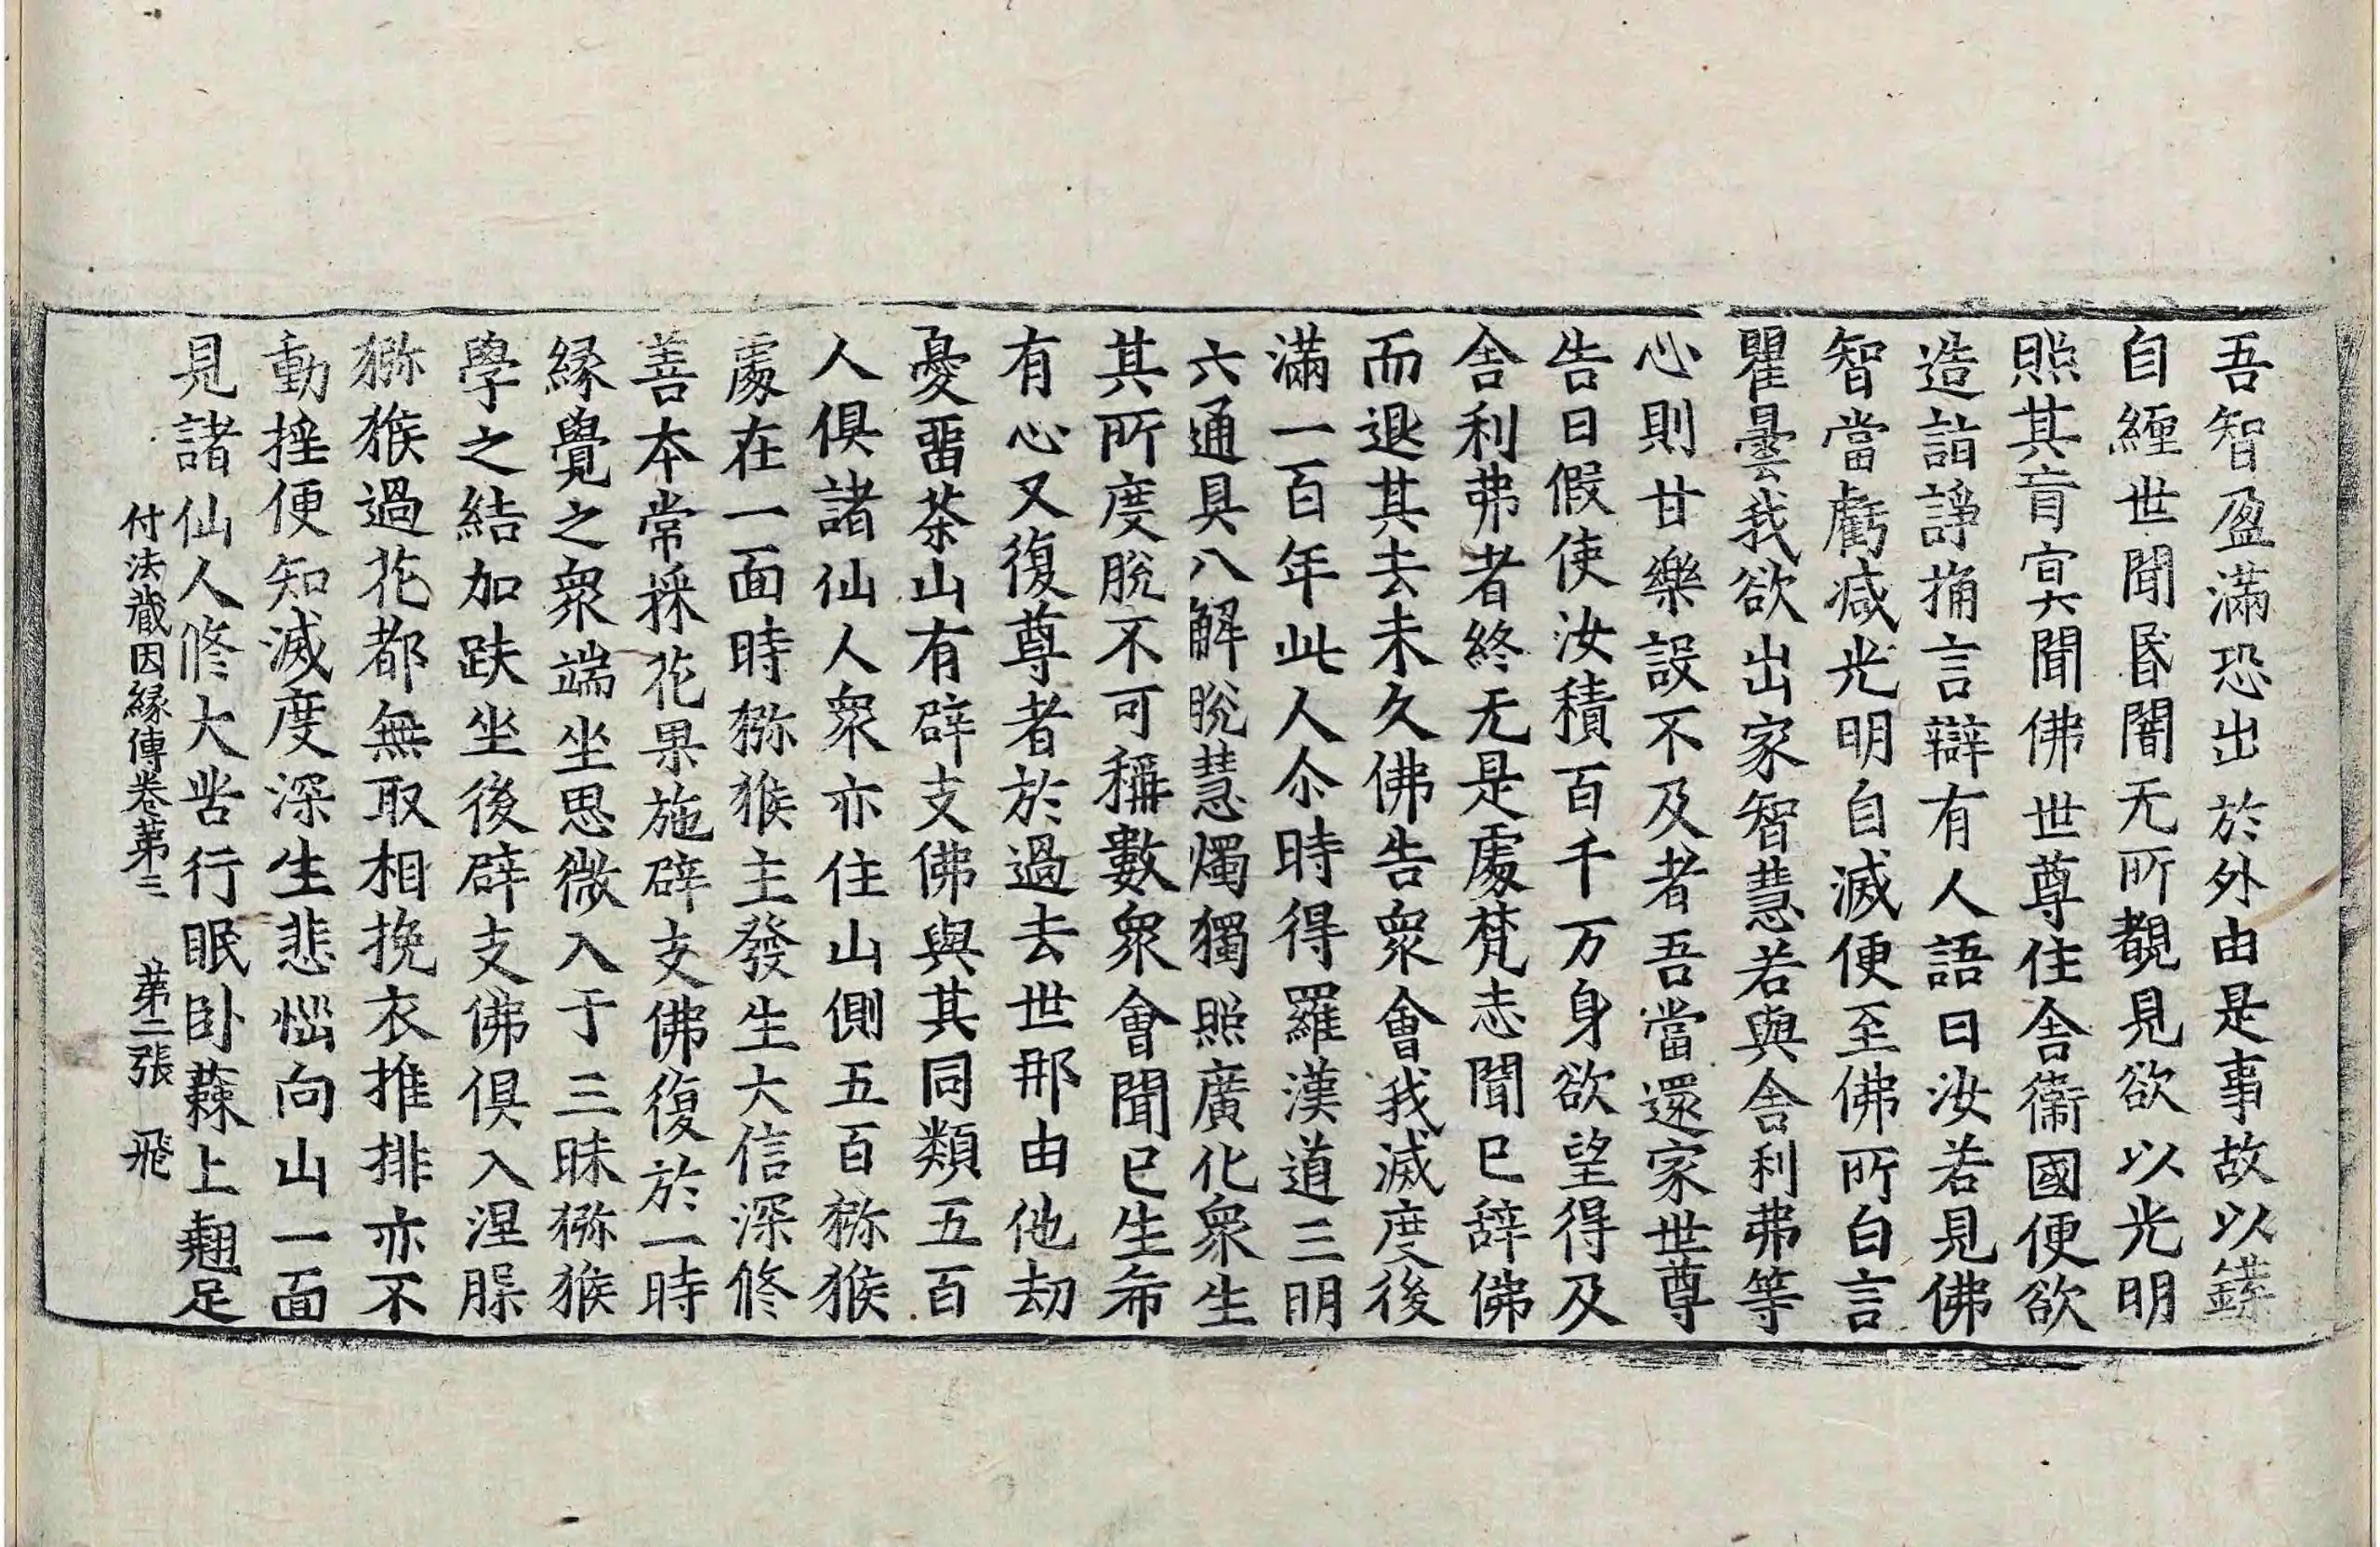 吾智盈滿恐出於外由是事故以鍱
自纏世聞昏闇无所覩見欲以光明
照其盲冥聞佛世尊住舍衞國便欲
造詣諍捔言辯有人語曰汝若見佛
智當虧减光明自滅便至佛所白言
瞿曇我欲出家智慧若與舍利弗等
心則甘樂設不及者吾當還家世尊
告曰假使汝積百千万身欲望得及
舍利弗者終无是處梵志聞已辞佛
而退其去未久佛告衆會我滅度後
滿一百年此人尒時得羅漢道三明
六通具八解脫慧燭獨照廣化衆生
其所度脫不可稱數衆會聞已生希
有心又復尊者於過去世那由他劫
憂畱茶山有辟支佛與其同類五百
人俱諸仙人衆亦住山側五百獼猴
處在一面時獼猴主發生大信深修
善本常採花果施辟支佛復於一時
緣覺之衆端坐思微入于三昧獼猴
學之結加趺坐後辟支佛俱入涅槃
獼猴過花都無取相挽衣推排亦不
動揺便知滅度深生悲惱向山一面
見諸仙人修大苦行眠卧蕀上翹足
付法藏因緣傳卷第三 第二張 飛